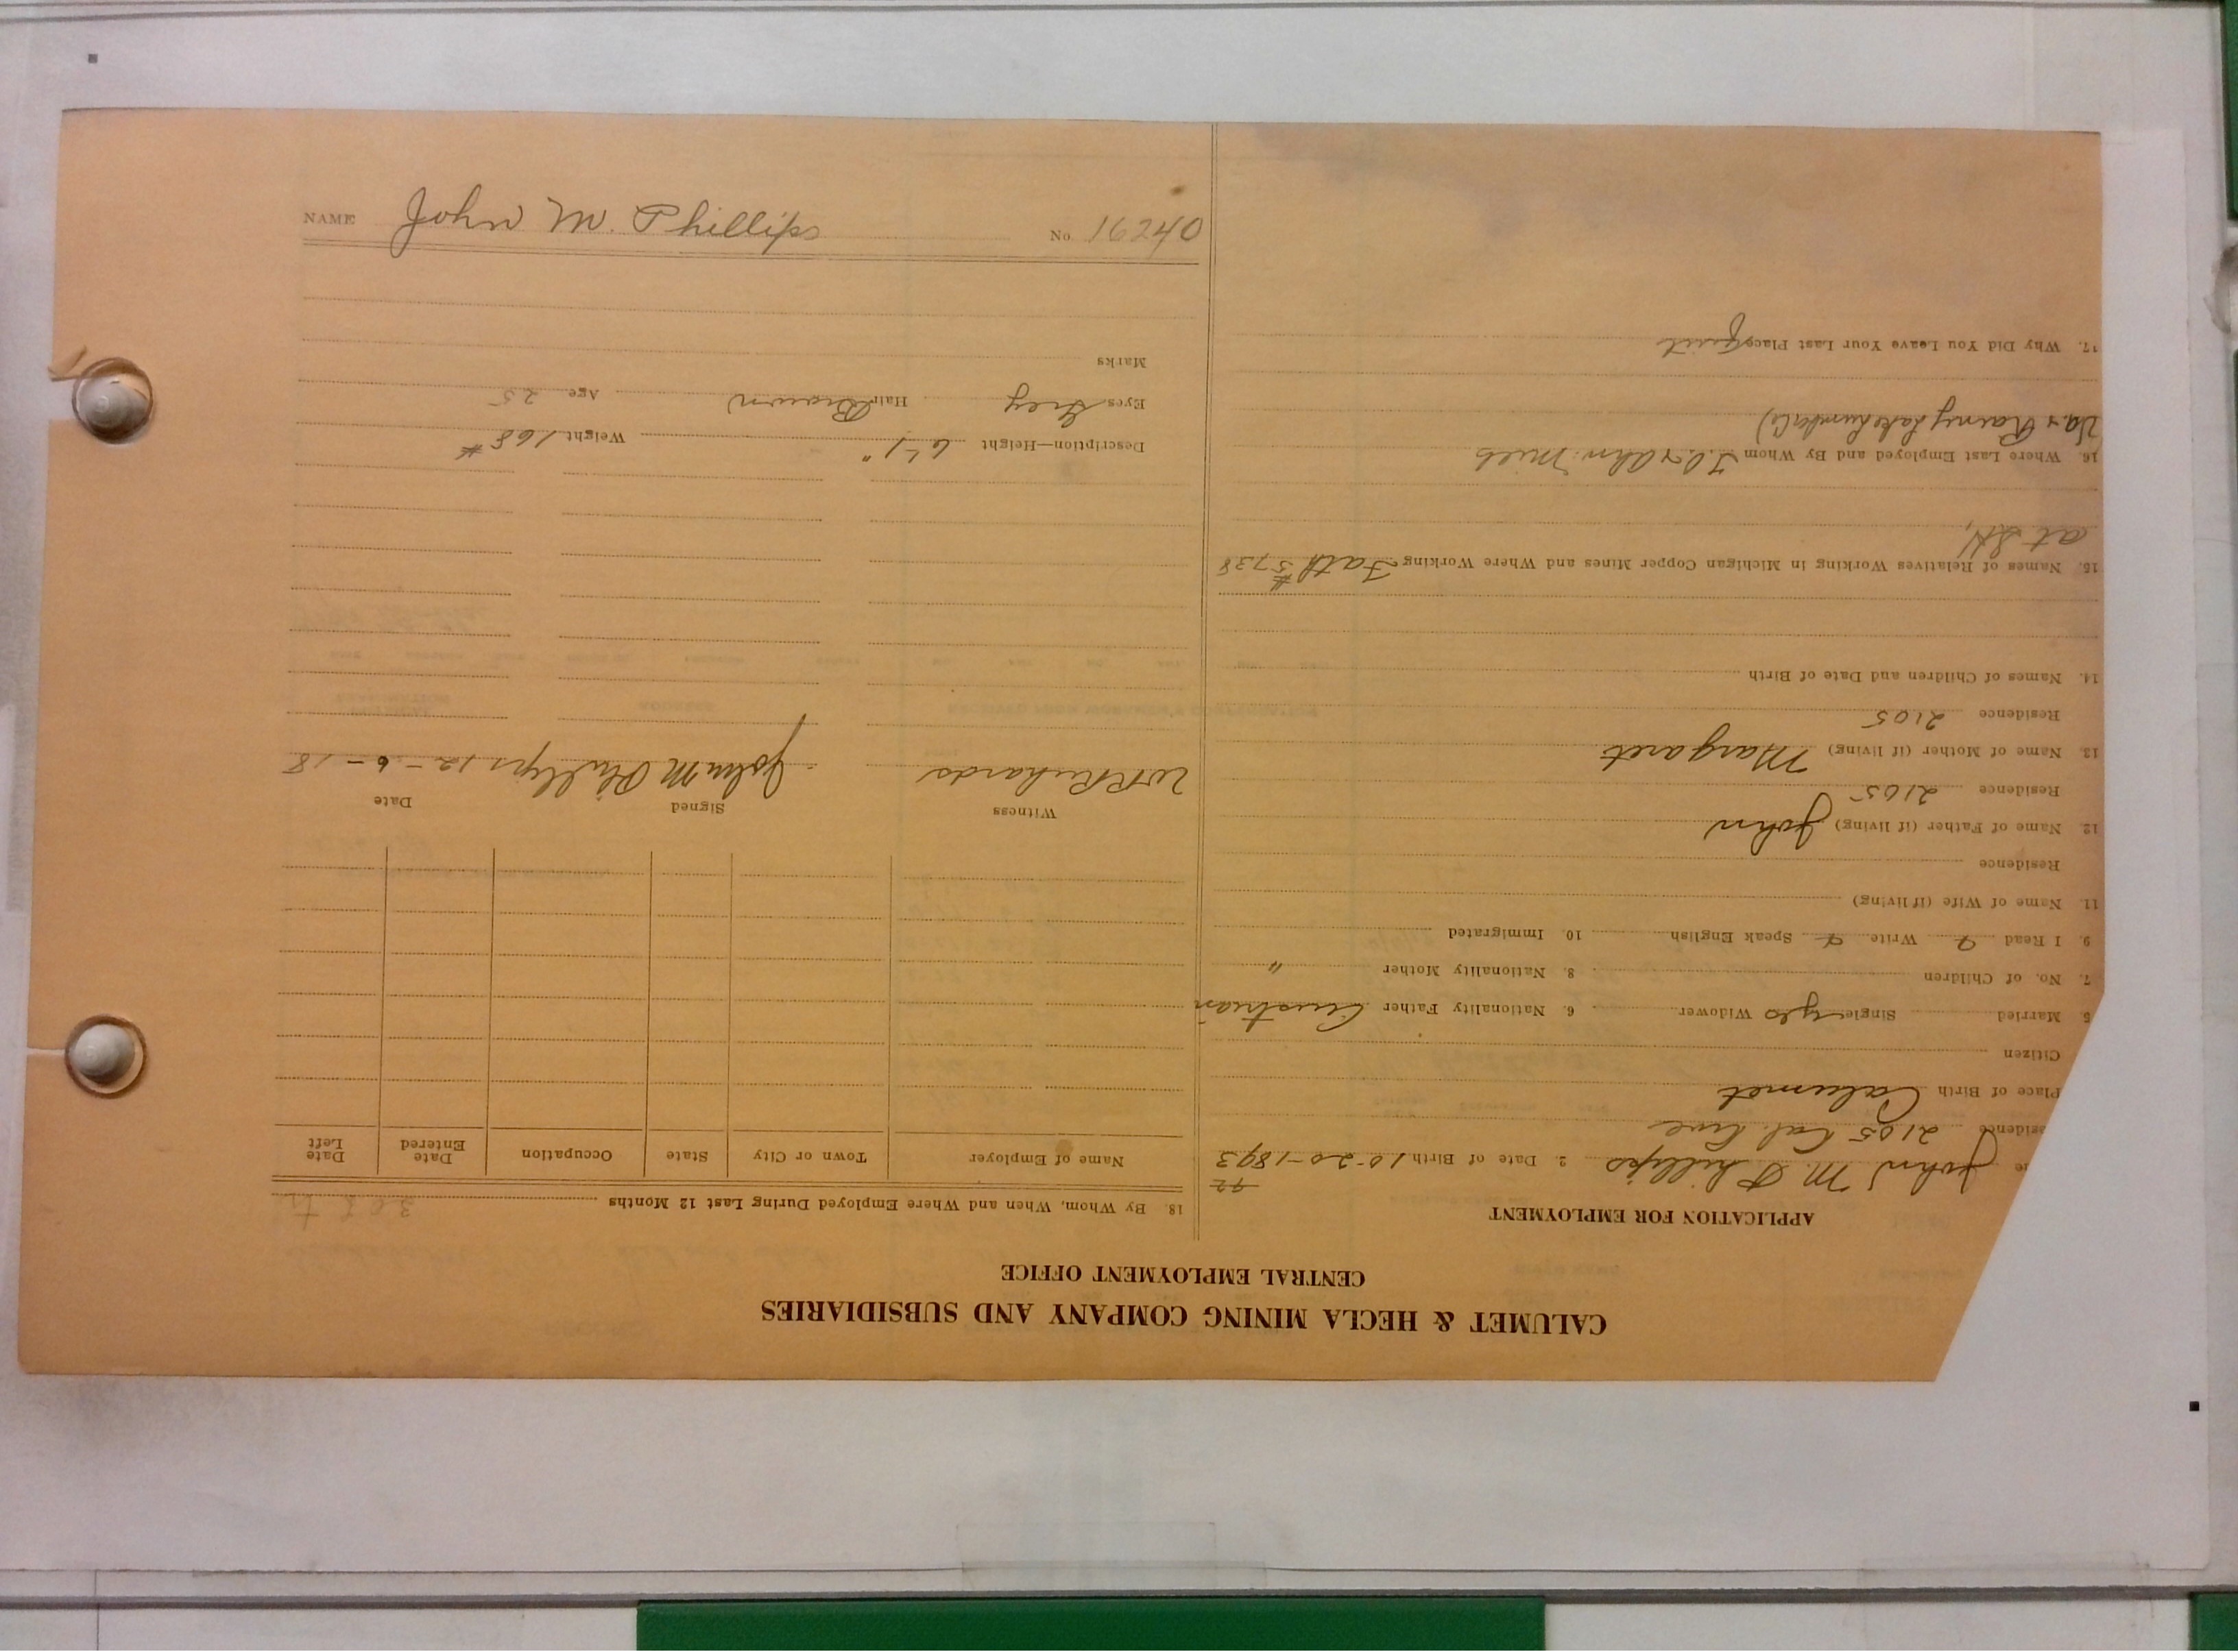 NAME John M. Phillips No. 16240
CALUMET & HECLA MINING COMPANY AND SUBSIDIARIES
CENTRAL EMPLOYMENT OFFICE
APPLICATION FOR EMPLOYMENT
John M. Phillips 2. Date of Birth 10-20-1893
92
2105 Cal. Ave
Place of Birth Calumet
Citizen
5. Married Single yes Widower 6. Nationality Father Austrian
7. No. of Children 8. Nationality Mother "
9. I Read Write Speak English 10. Immigrated
11. Name of Wife (if living)
Residence
12. Name of Father (if living) John
Residence 2105
13. Name of Mother (if living) Margaret
Residence 2105
14. Names of Children and Date of Birth
15. Names of Relatives Working in Michigan Copper Mines and Where Working Fath #5738
at
16. Where Last Employed and By Whom Minn
Va. & Rainy Lake Lumber Co)
17. Why Did You Leave Your Last Place Quit
18. By Whom, When and Where Employed During Last 12 Months
Name of Employer Town or City State Occupation Date Entered Date Left
Witness Signed Date
W R Richards John M Phillips 12-6-18
Description—Height 6'-1" Weight 168#
Eyes Grey Hair Brown Age 25
Marks